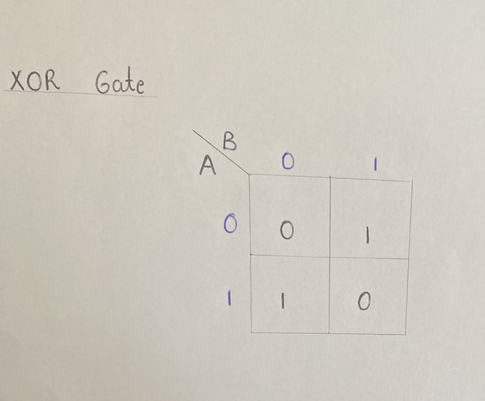 XOR Gate
B
A 0 1
0 0 1
1 1 0